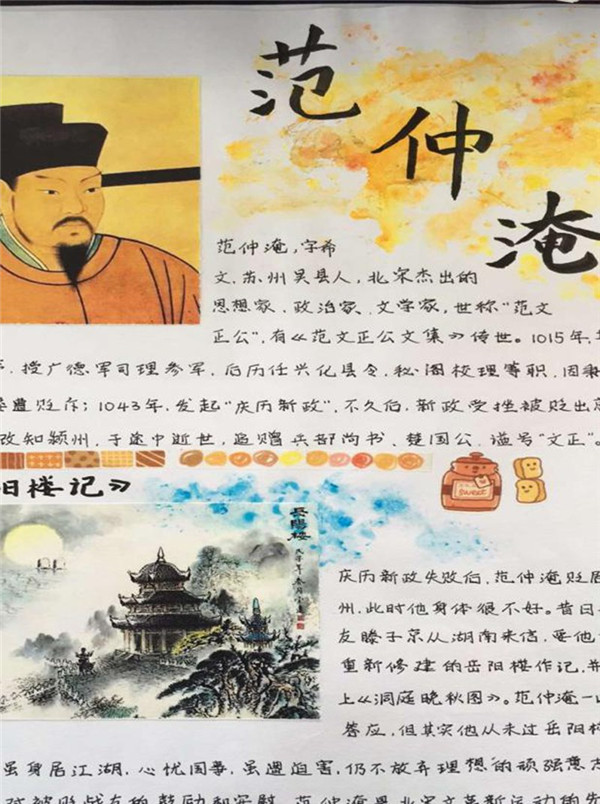 范仲淹
范仲淹,字希
文,苏州吴县人,北宋杰出的
思想家、政治家、文学家,世称"范文
正公",有《范文正公文集》传世。1015年,
授广德军司理参军,后历任兴化县令,秘阁校理等职,因
遭贬斥;1043年,发起"庆历新政",不久后,新政受挫被贬出
改知颍州,于途中逝世,追赠兵部尚书、楚国公,谥号"文正"。
阳楼记》
SWEET
岳陽楼
庆历新政失败后,范仲淹贬居
州,此时他身体很不好。昔日
友滕子京从湖南来信,要他
重新修建的岳阳楼作记,并
上《洞庭晚秋图》。范仲淹一
答应,但其实他从未过岳阳楼
虽身居江湖,心忧国事,虽遭迫害,仍不放弃理想的顽强意志
被贬战友的鼓励和安慰。范仲淹是北宋文革新运动的先